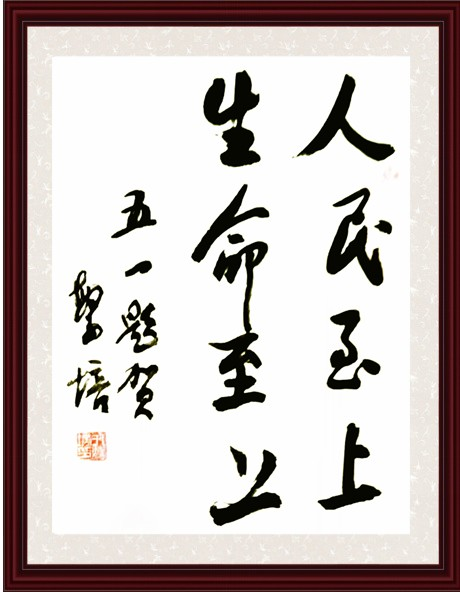 人民至上
生命至上
五一题贺
培